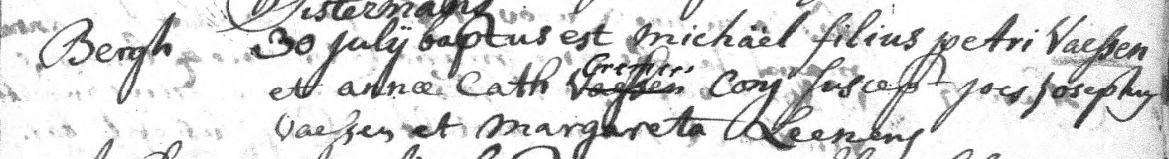 Sistermans
Bergh 30 julij baptus est michäel filius petri Vaessen
et annæ Cath Vaessen Conj suscept joes josephus
Vaessen et Margareta Leenens